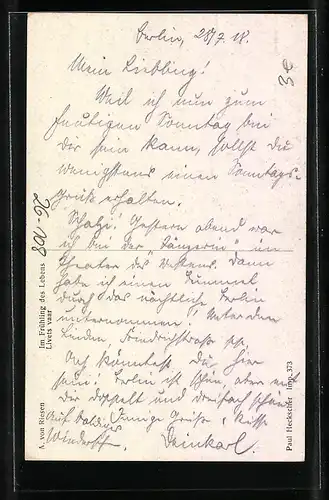 Berlin, 28/7. 18.
Mein Liebling!
Weil ich nun zum
heutigen Sonntag bei
dir sein kann, sollst du
wenigstens einen Sonntags-
gruß erhalten.
Schatzi! Gestern abend war
ich bei der "Sängerin" im
Theater des Westens. Dann
habe ich einen Bummel
durch das nächtliche Berlin
unternommen. Unter den
Linden, Friedrichstraße
Ach könntest Du hier
sein! Berlin ist schön, aber mit
dir doppelt und dreifach schön.
Auf baldiges Innige Grüße, Küsse
Wiederseh. Deinkarl.
26 108
A. von Riesen Im Frühling des Lebens
Livets vaar
Paul Heckscher Imp. 373